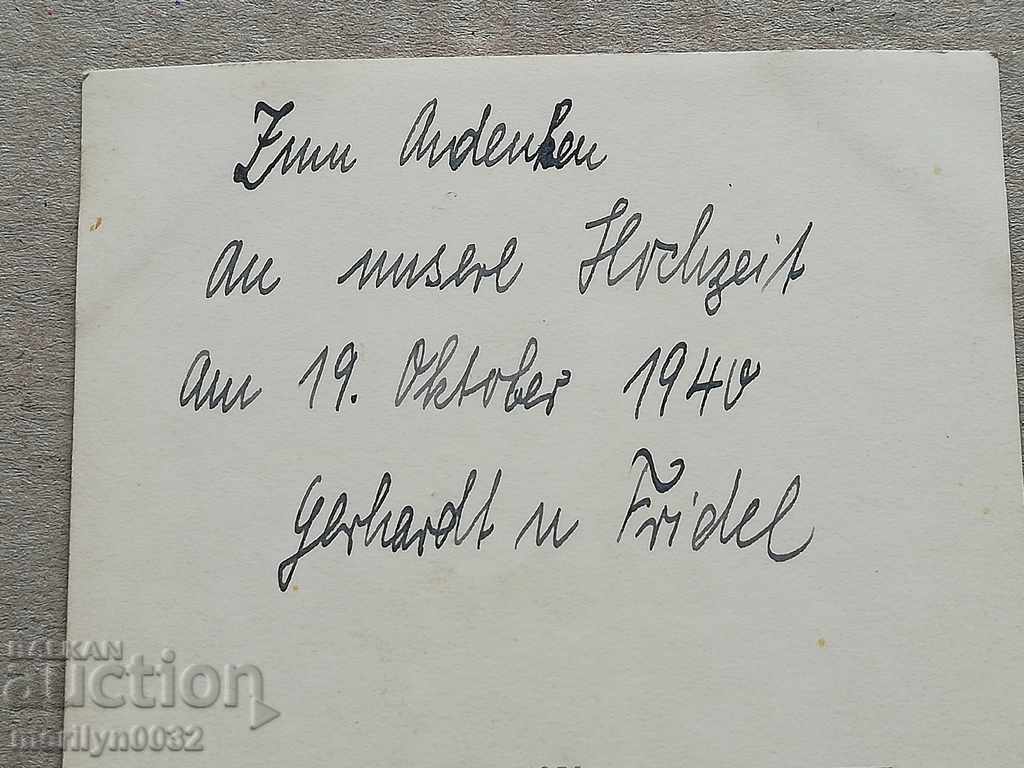 Zum Andenken
an unsere Hochzeit
am 19. Oktober 1940
Gerhardt u Fridel
БАЛКАН
auction
merilyn0032